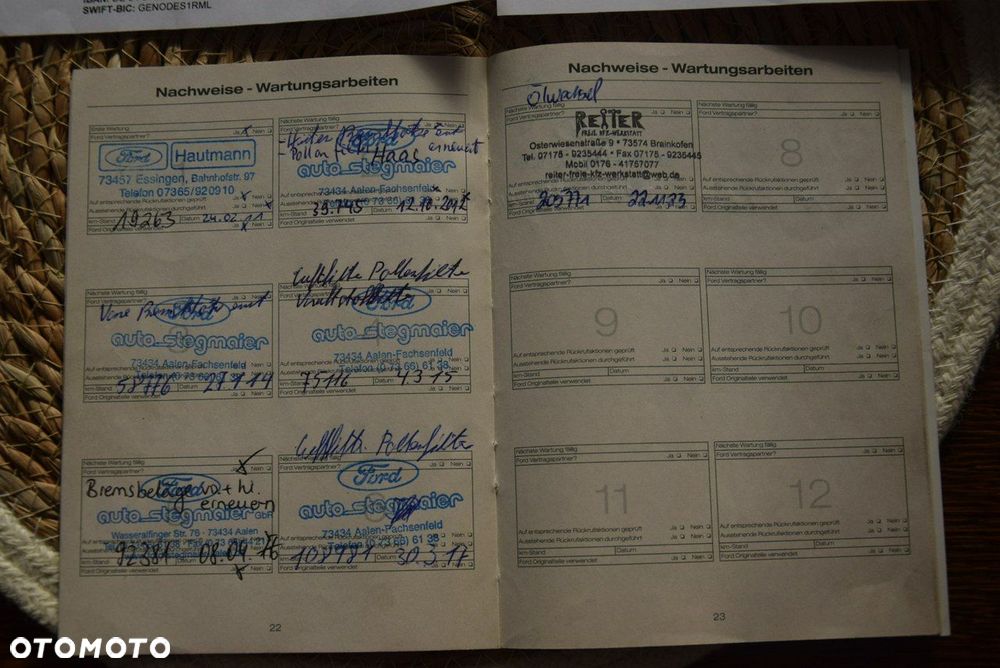 SWIFT-BIC: GENODES1RML
Nachweise - Wartungsarbeiten
Erste Wartung
Ford Vertragspartner? Ja Nein
Ford Hautmann
73457 Essingen, Bahnhofstr. 97
Telefon 07365/920910
km-Stand 19263 Datum 24.02.11
Ford Originalteile verwendet Ja Nein
Nächste Wartung fällig
- Pollen erneuert
Haas
auto stegmaier
73434 Aalen-Fachsenfeld
km-Stand Datum 12.10.
Ford Originalteile verwendet Ja Nein
Nächste Wartung fällig
Ford Vertragspartner? Ja Nein
Ford
auto stegmaier
73434 Aalen-Fachsenfeld
58776
Ford Originalteile verwendet Ja Nein
Luftfilter Pollenfilter
Nächste Wartung fällig
Ford
auto stegmaier
73434 Aalen-Fachsenfeld
Telefon (0 73 66) 61 38
75116 Datum 4.3.15
Ford Originalteile verwendet Ja Nein
Nächste Wartung fällig
Ford Vertragspartner? Ja Nein
Bremsbeläge vo + hi.
erneuern
auto stegmaier GbR
Wasseralfinger Str. 76 · 73434 Aalen
92381 08.09.16
Ford Originalteile verwendet Ja Nein
Luftfilter Pollenfilter
Nächste Wartung fällig
Ford Vertragspartner? Ja Nein
Ford
auto stegmaier
73434 Aalen-Fachsenfeld
Telefon (0 73 66) 61 38
108981 30.3.17
Ford Originalteile verwendet Ja Nein
22
Nachweise - Wartungsarbeiten
Ölwechsel
Nächste Wartung fällig
REITER
FREIE KFZ-WERKSTATT
Osterwiesenstraße 9 * 73574 Brainkofen
Tel. 07176 - 9235444 * Fax 07176 - 9235445
Mobil 0176 - 41767077
reiter-freie-kfz-werkstatt@web.de
km-Stand 205771 Datum 22.11.23
Ford Originalteile verwendet Ja Nein
Nächste Wartung fällig
Ford Vertragspartner? Ja Nein
8
Auf entsprechende Rückrufaktionen geprüft Ja Nein
Ausstehende Rückrufaktionen durchgeführt Ja Nein
km-Stand Datum
Ford Originalteile verwendet Ja Nein
Nächste Wartung fällig
Ford Vertragspartner? Ja Nein
9
Auf entsprechende Rückrufaktionen geprüft Ja Nein
Ausstehende Rückrufaktionen durchgeführt Ja Nein
km-Stand Datum
Ford Originalteile verwendet Ja Nein
Nächste Wartung fällig
Ford Vertragspartner? Ja Nein
10
Auf entsprechende Rückrufaktionen geprüft Ja Nein
Ausstehende Rückrufaktionen durchgeführt Ja Nein
km-Stand Datum
Ford Originalteile verwendet Ja Nein
Nächste Wartung fällig
Ford Vertragspartner? Ja Nein
11
Auf entsprechende Rückrufaktionen geprüft Ja Nein
Ausstehende Rückrufaktionen durchgeführt Ja Nein
km-Stand Datum
Ford Originalteile verwendet Ja Nein
Nächste Wartung fällig
Ford Vertragspartner? Ja Nein
12
Auf entsprechende Rückrufaktionen geprüft Ja Nein
Ausstehende Rückrufaktionen durchgeführt Ja Nein
km-Stand Datum
Ford Originalteile verwendet Ja Nein
23
OTOMOTO